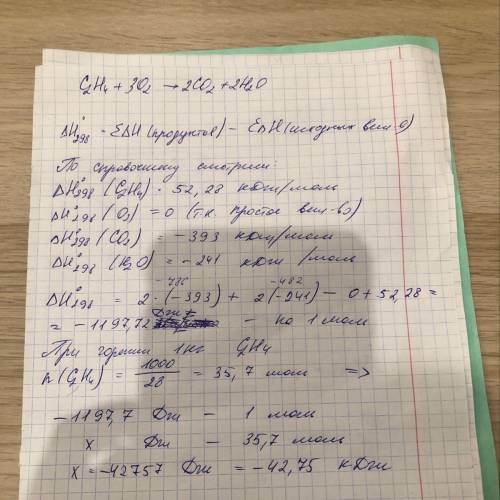 C₂H₄ + 3O₂ → 2CO₂ + 2H₂O
ΔH°₂₉₈ = ΣΔH (продуктов) – ΣΔH (исходных вещ-в)
По справочнику смотрим:
ΔH°₂₉₈ (C₂H₄) = 52,28 кДж/моль
ΔH°₂₉₈ (O₂) = 0 (т.к. простое вещ-во)
ΔH°₂₉₈ (CO₂) = –393 кДж/моль
ΔH°₂₉₈ (H₂O) = –241 кДж /моль
–786 –482
ΔH°₂₉₈ = 2·(–393) + 2(–241) – 0 + 52,28 =
= –1197,72 Дж – на 1 моль
При горении 1кг C₂H₄
n(C₂H₄) = 1000/28 = 35,7 моль =>
–1197,7 Дж – 1 моль
x Дж – 35,7 моль
x = –42757 Дж = –42,75 кДж